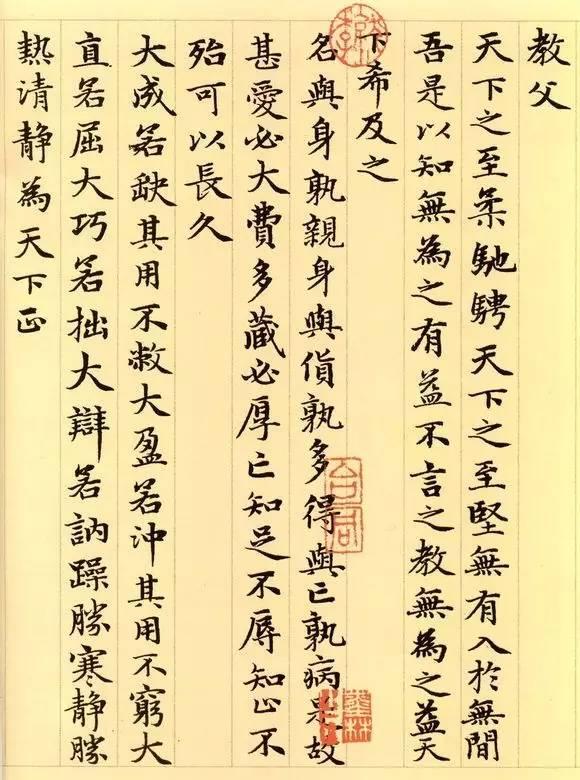 教父
天下之至柔馳騁天下之至堅無有入於無間
吾是以知無為之有益不言之教無為之益天
下希及之
名與身孰親身與貨孰多得與亡孰病是故
甚愛必大費多藏必厚亡知足不辱知止不
殆可以長久
大成若缺其用不敝大盈若沖其用不窮大
直若屈大巧若拙大辯若訥躁勝寒静勝
熱清静為天下正